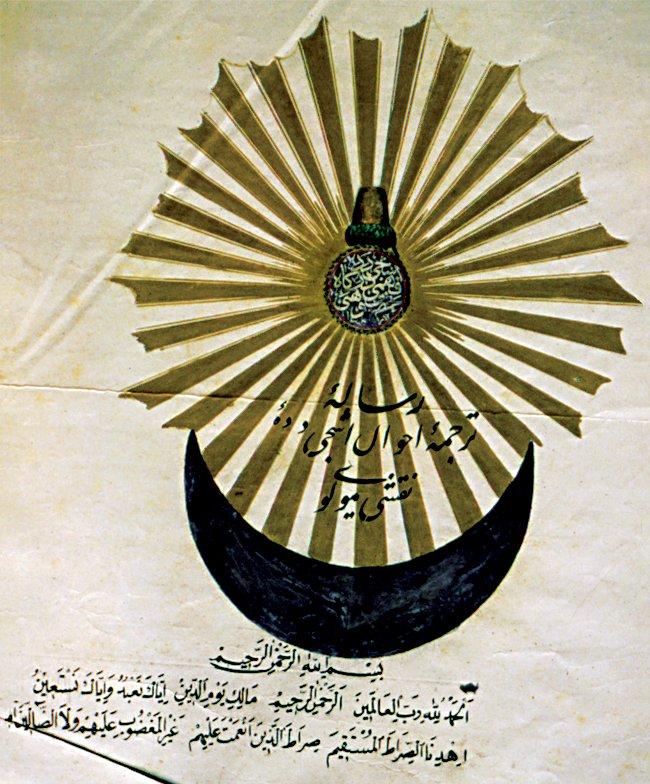 رسالۀ
ترجمۀ احوال اشجی ددۀ
نقشی مولوی
بِسْمِ اللهِ الرَّحْمٰنِ الرَّحِيْمِ
اَلْحَمْدُ لِلّٰهِ رَبِّ الْعَالَمِينَ اَلرَّحْمٰنِ الرَّحِيمِ مَالِكِ يَوْمِ الدِّينِ اِيَّاكَ نَعْبُدُ وَاِيَّاكَ نَسْتَعِينُ
اِهْدِنَا الصِّرَاطَ الْمُسْتَقِيمَ صِرَاطَ الَّذِينَ اَنْعَمْتَ عَلَيْهِمْ غَيْرِ الْمَغْضُوبِ عَلَيْهِمْ وَلَا الضَّالِّينَ